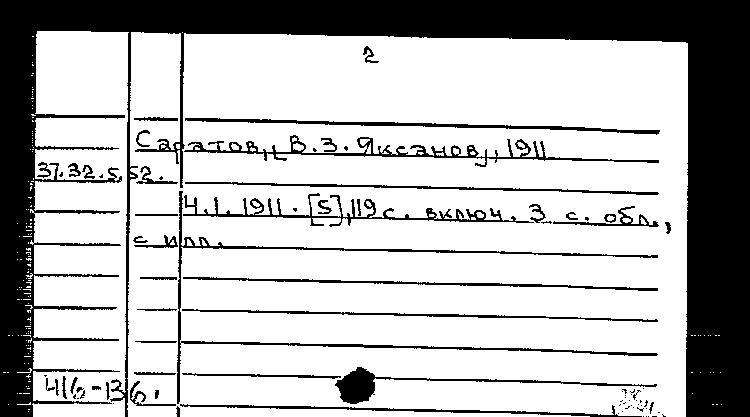 2
Саратов, [В.З. Яксанов], 1911
37.32.5.52.
Ч.1. 1911. [5], 119 с. включ. 3 с. обл.,
с илл.
416-136.